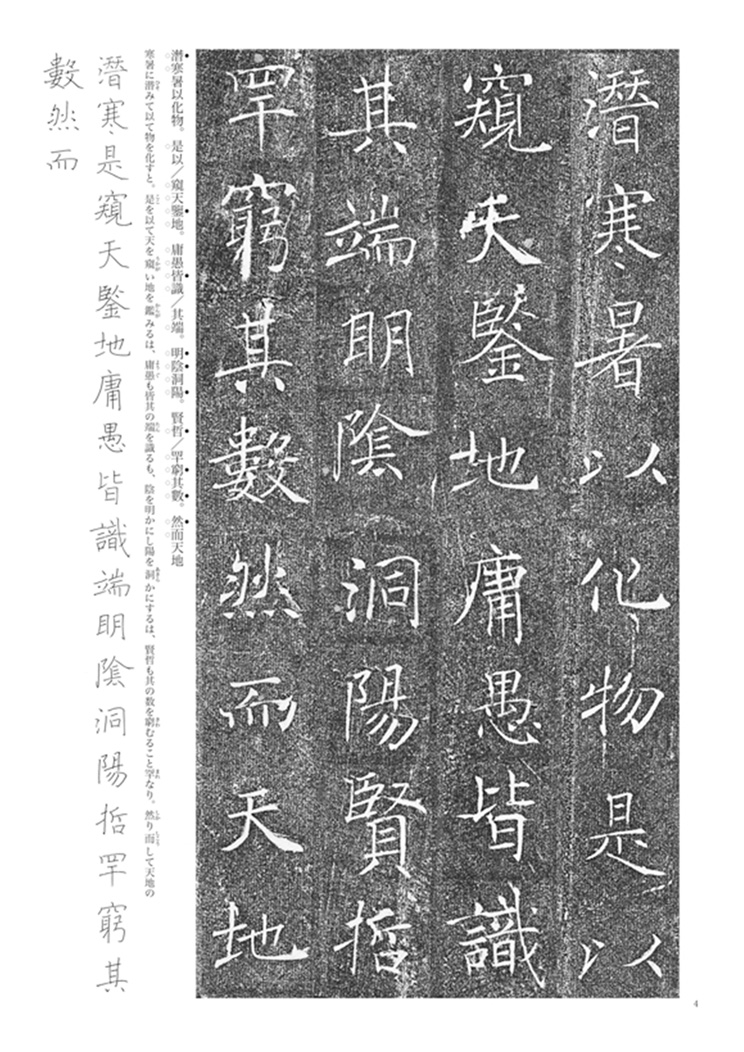 潛寒暑以化物是以
窺天鑒地庸愚皆識
其端明陰洞陽賢哲
罕窮其數然而天地
潛寒暑以化物。是以／窺天鑒地。庸愚皆識／其端。明陰洞陽。賢哲／罕窮其數。然而天地
寒暑に潜みて以て物を化すと。是を以て天を窺い地を鑑みるは、庸愚も皆其の端を識るも、陰を明かにし陽を洞かにするは、賢哲も其の数を窮むること罕なり。然り而して天地の
潛寒是窺天鑒地庸愚皆識端明陰洞陽哲罕窮其
數然而
4